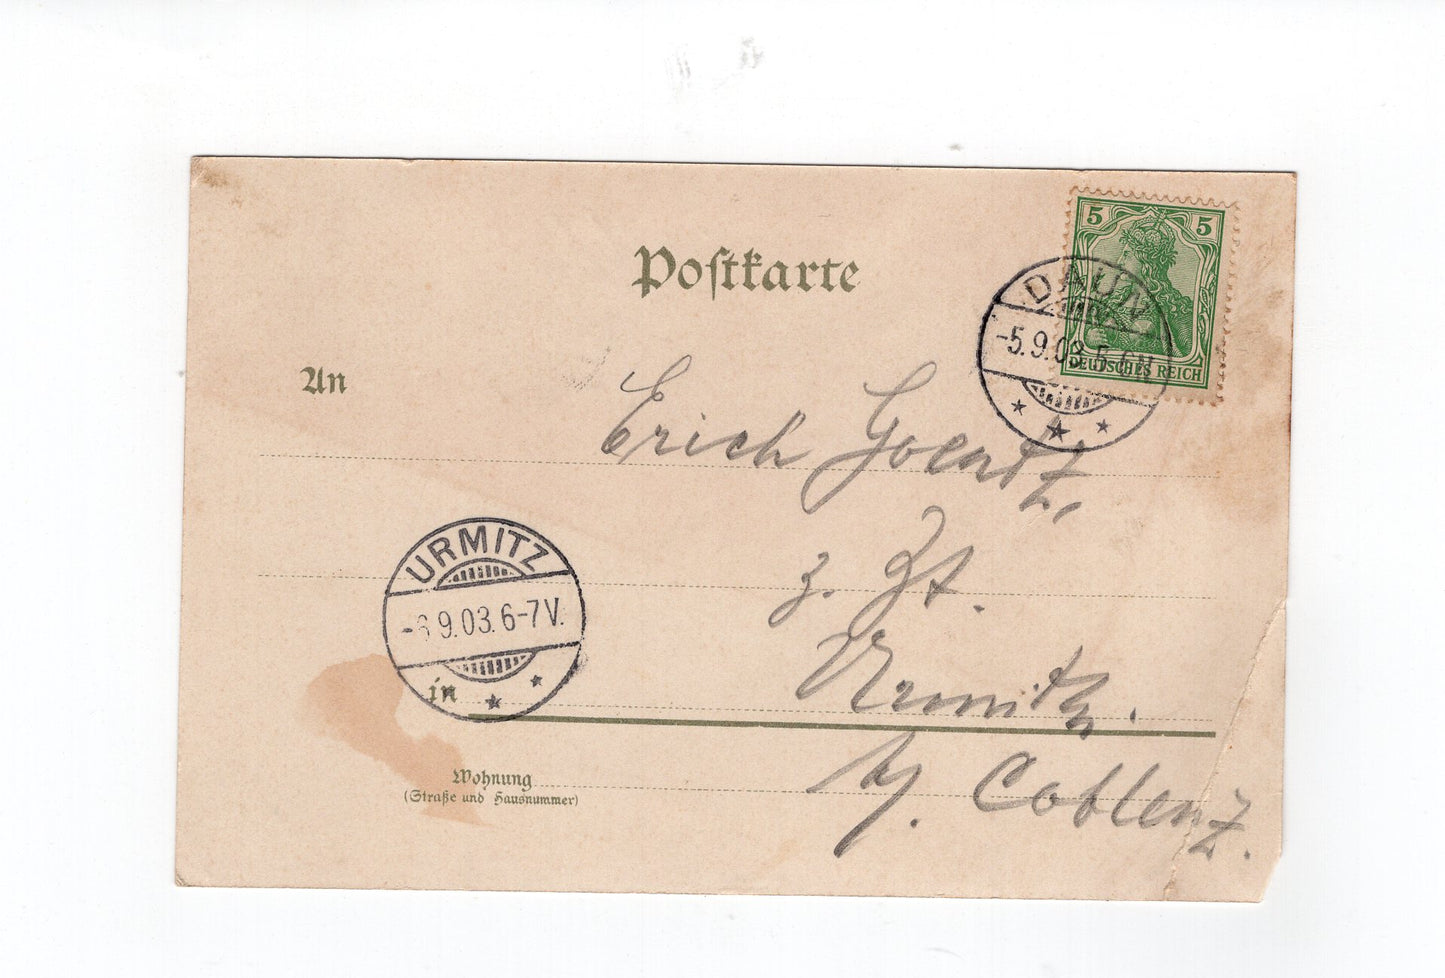 Postkarte
5 5
DEUTSCHES REICH
DAUN
-5.9.03.5-6N
An
Erich Goertz,
z. Zt.
Urmitz.
b/ Coblenz.
URMITZ
-6.9.03.6-7V.
in
Wohnung
(Straße und Hausnummer)